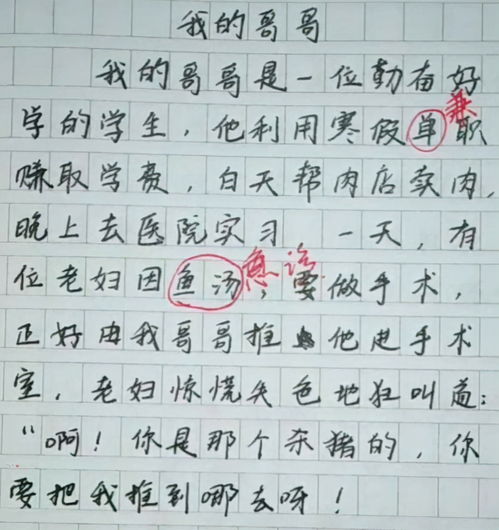 我的哥哥
我的哥哥是一位勤奋好
学的学生，他利用寒假单职
兼
赚取学费，白天帮肉店卖肉，
晚上去医院实习 一天，有
位老妇因鱼汤，要做手术，
急诊
正好由我哥哥推他进手术
室，老妇惊慌失色地狂叫道：
“啊！你是那个杀猪的，你
要把我推到哪去呀！